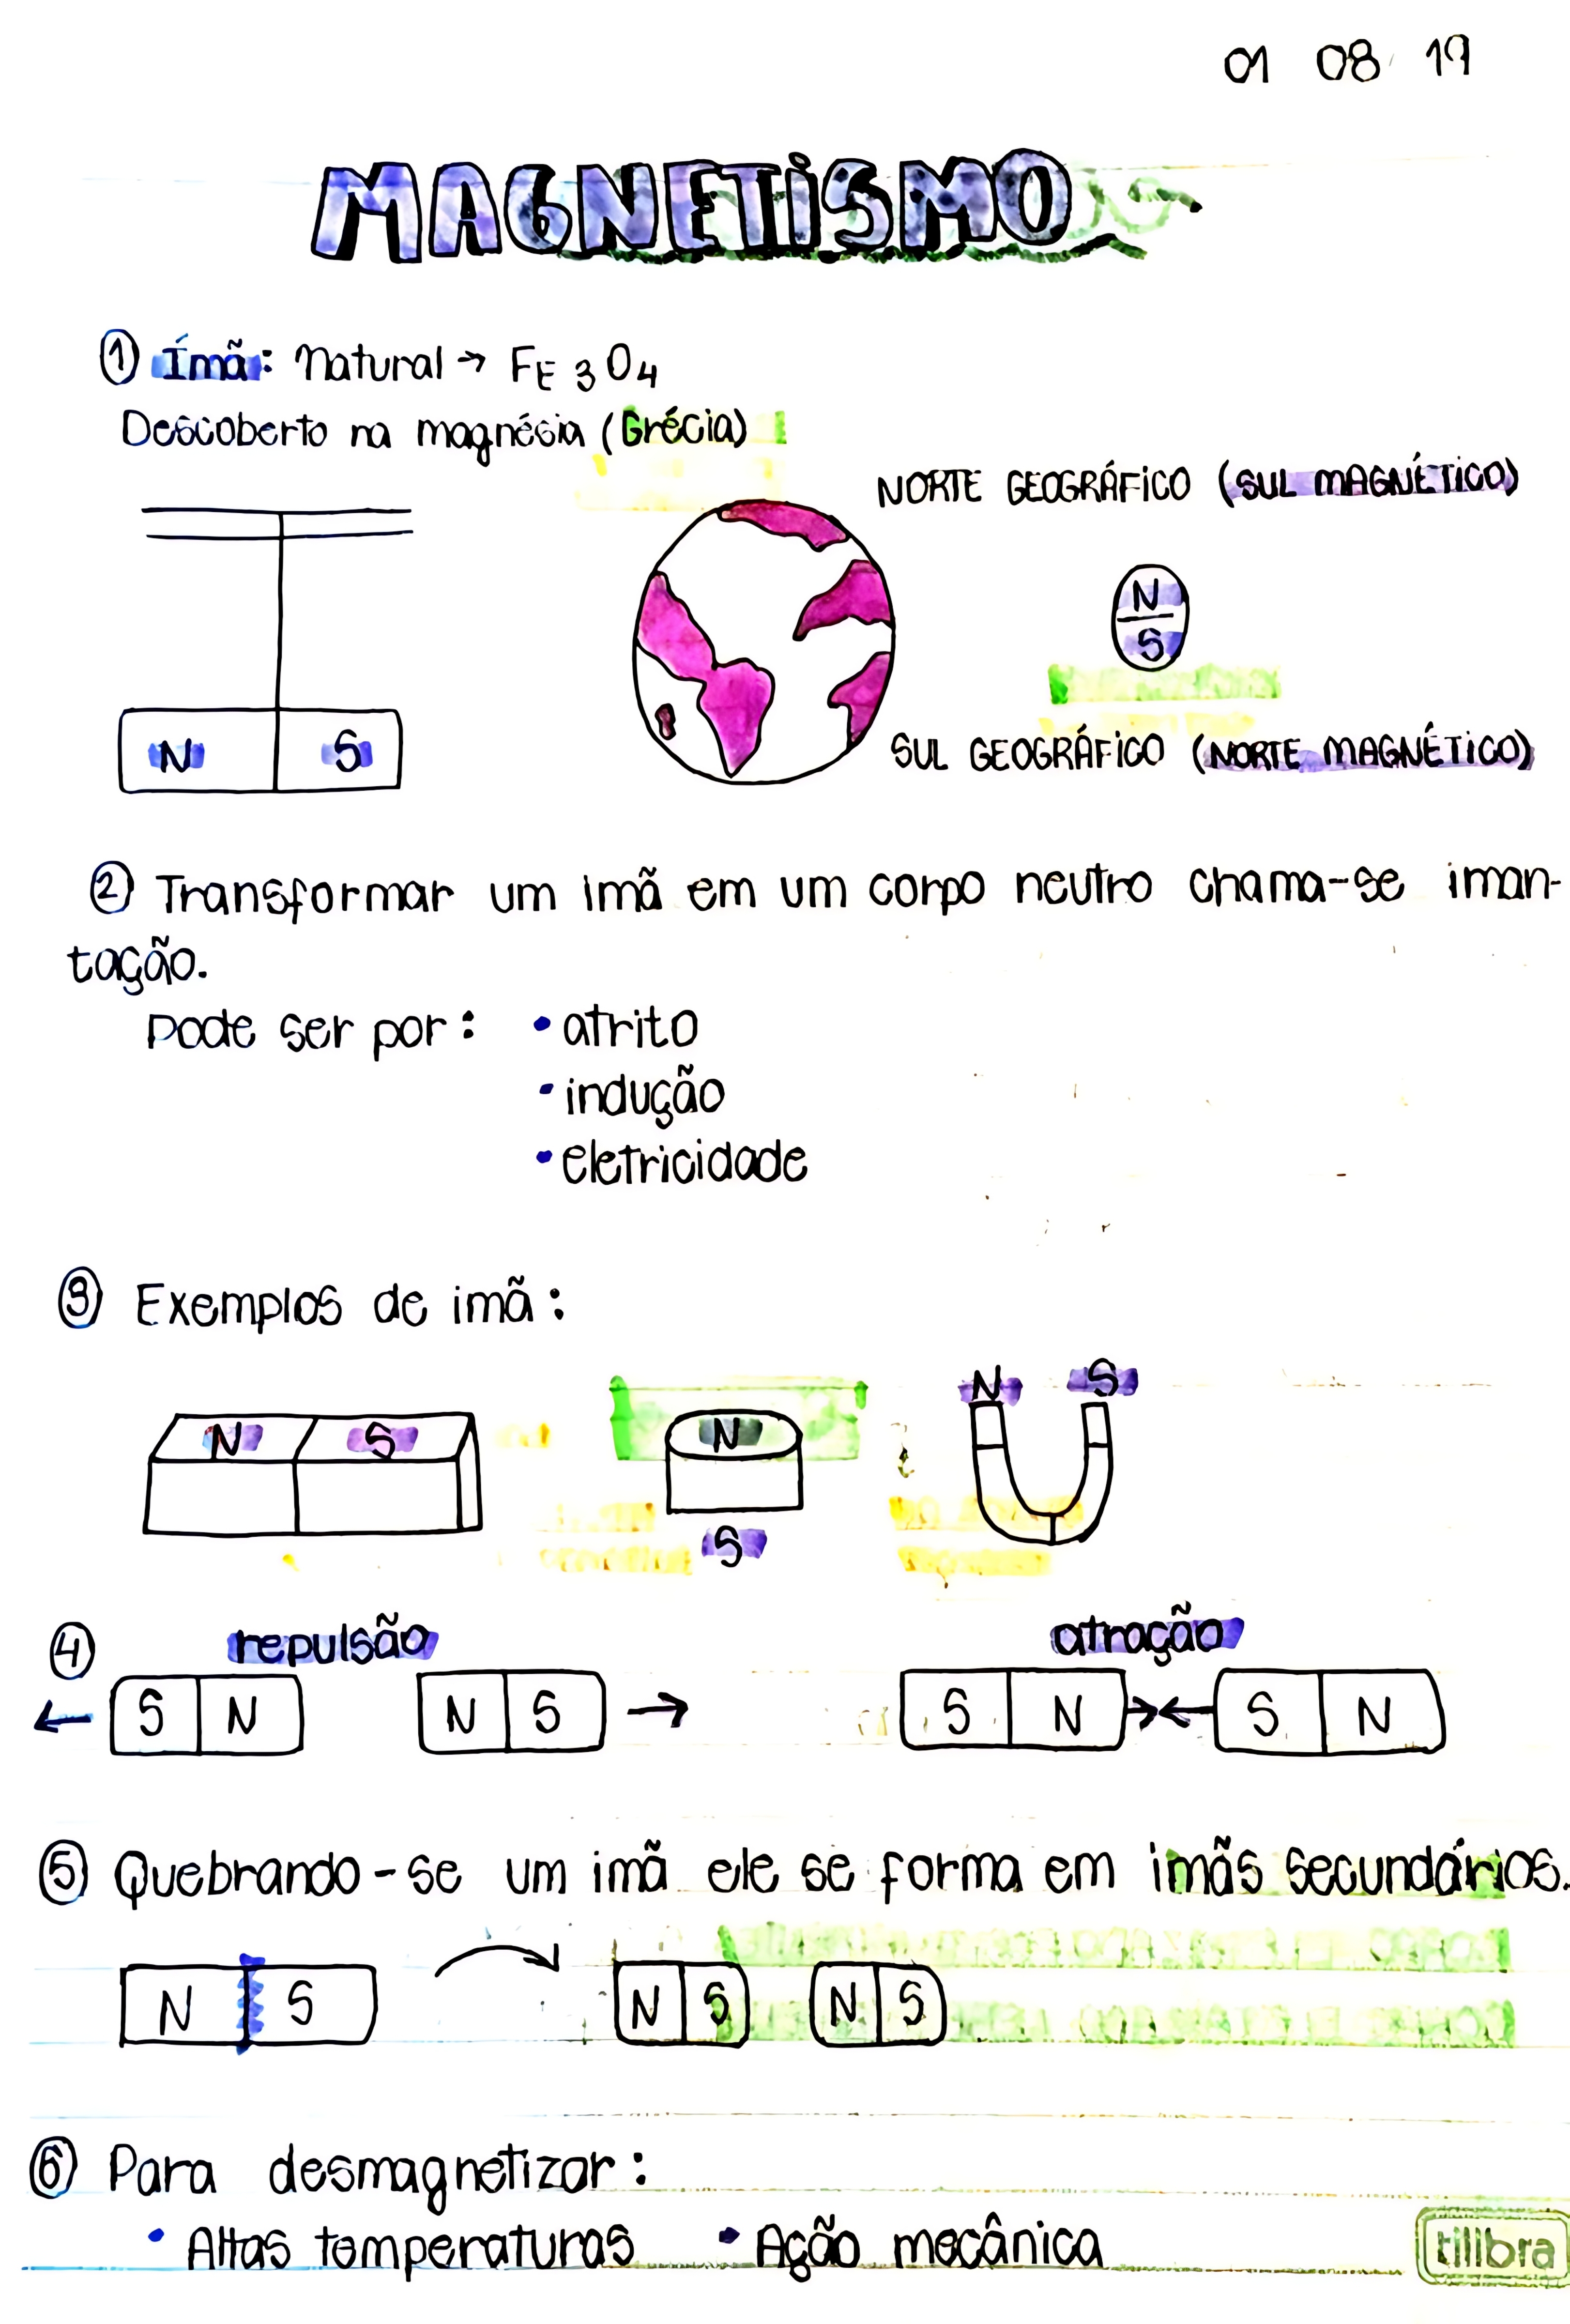 01 08 19
MAGNETISMO
① Ímã: Natural → FE 3 O4
Descoberto na magnésia (Grécia)
NORTE GEOGRÁFICO (SUL MAGNÉTICO)
N
S
N S
SUL GEOGRÁFICO (NORTE MAGNÉTICO)
② Transformar um imã em um corpo neutro chama-se iman-
tação.
Pode ser por: • atrito
• indução
• eletricidade
③ Exemplos de imã:
N S
N S
N
S
④ repulsão atração
← S N N S → S N →← S N
⑤ Quebrando-se um imã ele se forma em imãs secundários.
N S N S N S
⑥ Para desmagnetizar:
• Altas temperaturas • Ação mecânica
tilibra